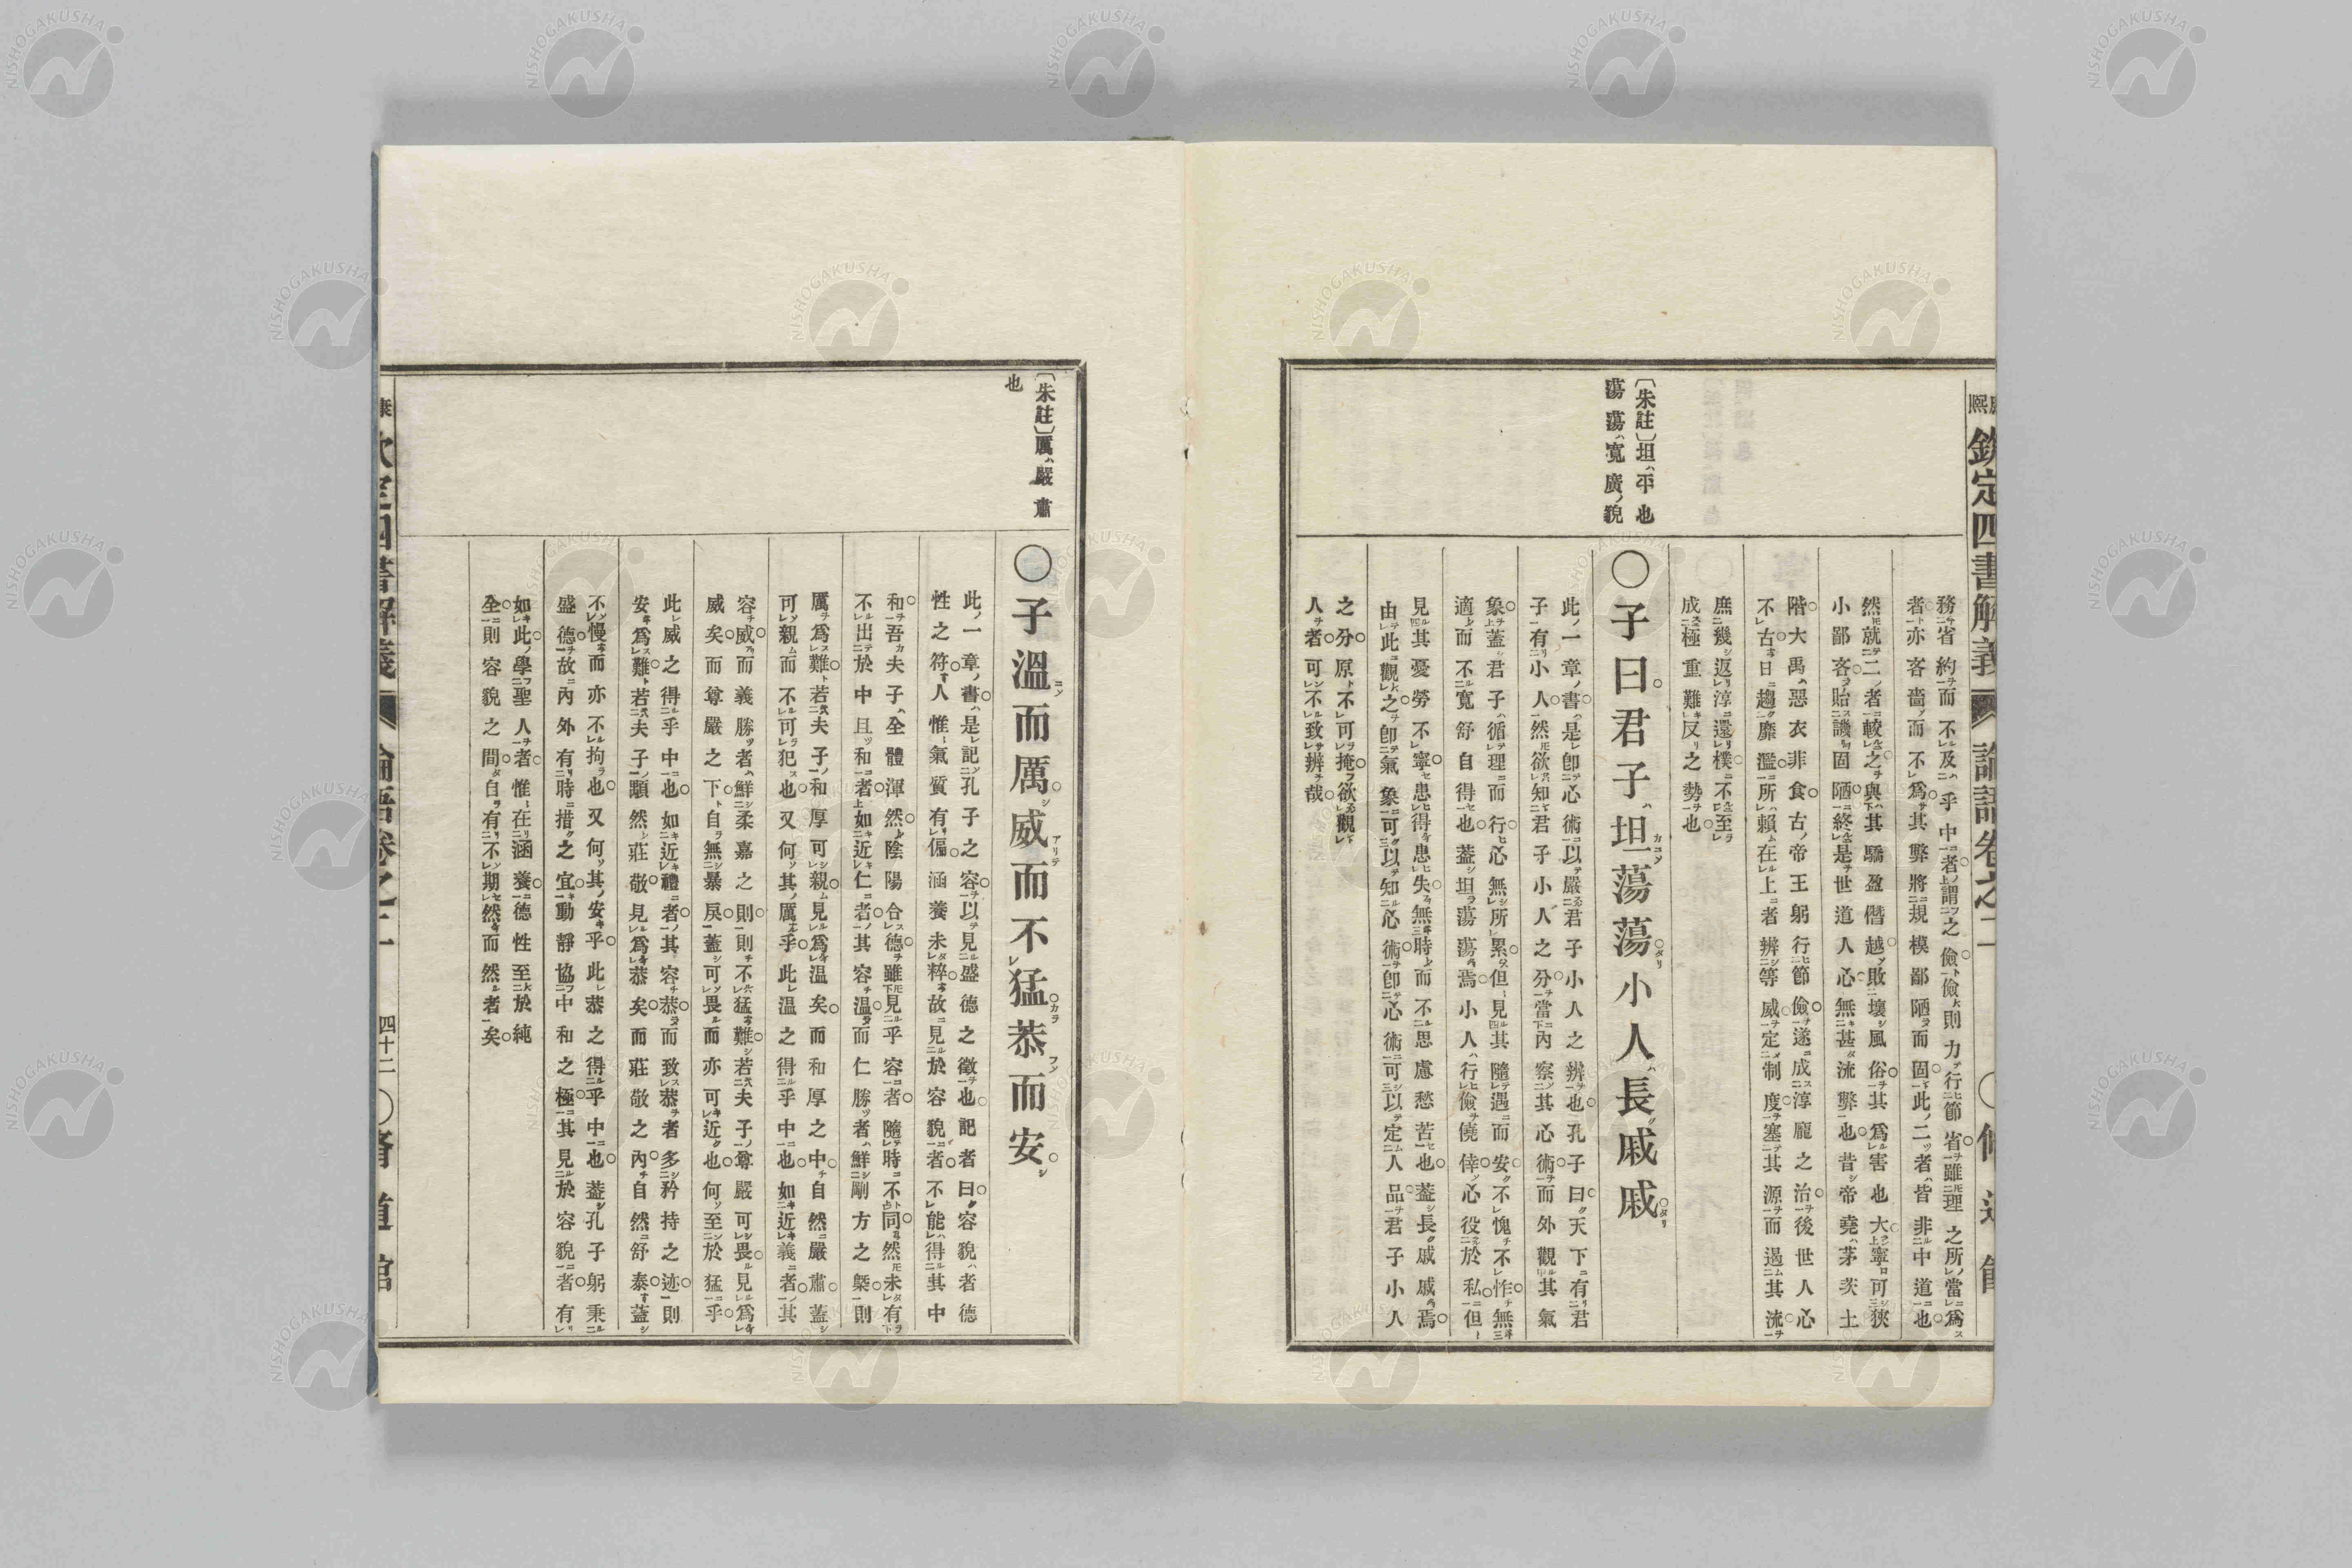 康熙 欽定四書解義 論語卷之二 〇脩道館
務省約而不及乎中者謂之儉儉則力行節省雖理之所當爲
者亦吝嗇而不爲其弊將規模鄙陋而固此二者皆非中道也
然就二者較之與其驕盈僭越敗壞風俗其爲害也大寧可狹
小鄙吝貽譏固陋終是世道人心無甚流弊也昔帝堯茅茨土
階大禹惡衣非食古帝王躬行節儉遂成淳龐之治後世人心
不古日趨靡濫所賴在上者辨等威定制度塞其源而遏其流
庶幾返淳還樸不至
成極重難反之勢也
〔朱註〕坦平也
蕩蕩寬廣貌
〇子曰君子坦蕩蕩小人長戚戚
此一章書是卽心術以嚴君子小人之辨也孔子曰天下有君
子有小人然欲知君子小人之分當內察其心術而外觀其氣
象蓋君子循理而行心無所累但見其隨遇而安不愧不怍無
適而不寬舒自得也蓋坦蕩蕩焉小人行儉僥倖心役於私但
見其憂勞不寧患得患失無時而不思慮愁苦也蓋長戚戚焉
由此觀之卽氣象可以知心術卽心術可以定人品君子小人
之分原不可掩欲觀
人者可不致辨哉
〔朱註〕厲嚴肅
也
〇子溫而厲威而不猛恭而安
此一章書是記孔子之容以見盛德之徵也記者曰容貌者德
性之符人惟氣質有偏涵養未粹故見於容貌者不能得其中
和吾夫子全體渾然陰陽合德雖見乎容者隨時不同然未有
不出於中且和者如近仁者其容溫而仁勝者鮮剛方之槩則
厲爲難若夫子和厚可親見爲溫矣而和厚之中自然嚴肅蓋
可親而不可犯也又何其厲乎此溫之得乎中也如近義者其
容威而義勝者鮮柔嘉之則則不猛難若夫子尊嚴可畏見爲
威矣而尊嚴之下自無暴戾蓋可畏而亦可近也何至於猛乎
此威之得乎中也如近禮者其容恭而致恭者多矜持之迹則
安爲難若夫子顒然莊敬見爲恭矣而莊敬之內自然舒泰蓋
不慢而亦不拘也又何其安乎此恭之得乎中也蓋孔子躬秉
盛德故內外有時措之宜動靜協中和之極其見於容貌者有
如此學聖人者惟在涵養德性至於純
全則容貌之間自有不期然而然者矣
四十二
NISHOGAKUSHA